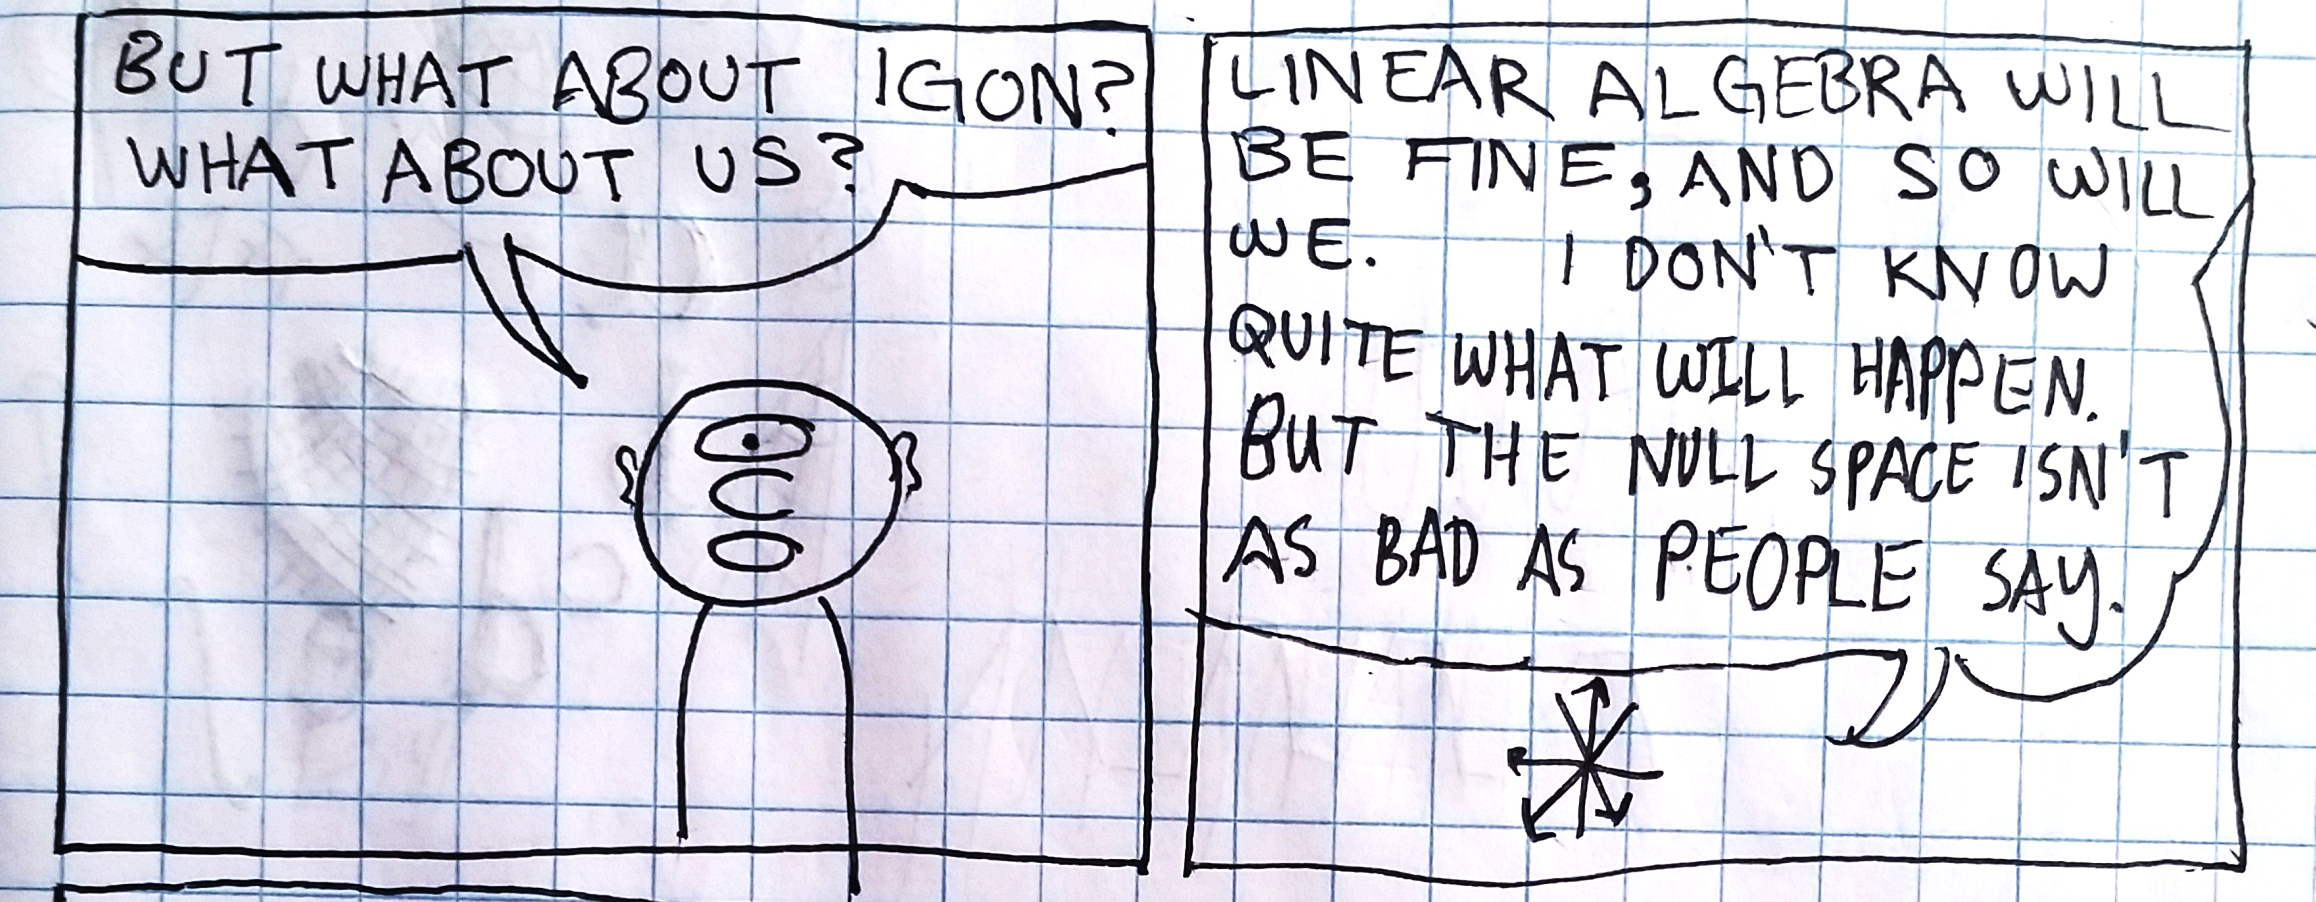 BUT WHAT ABOUT IGON?
WHAT ABOUT US?
LINEAR ALGEBRA WILL
BE FINE, AND SO WILL
WE. I DON'T KNOW
QUITE WHAT WILL HAPPEN.
BUT THE NULL SPACE ISN'T
AS BAD AS PEOPLE SAY.